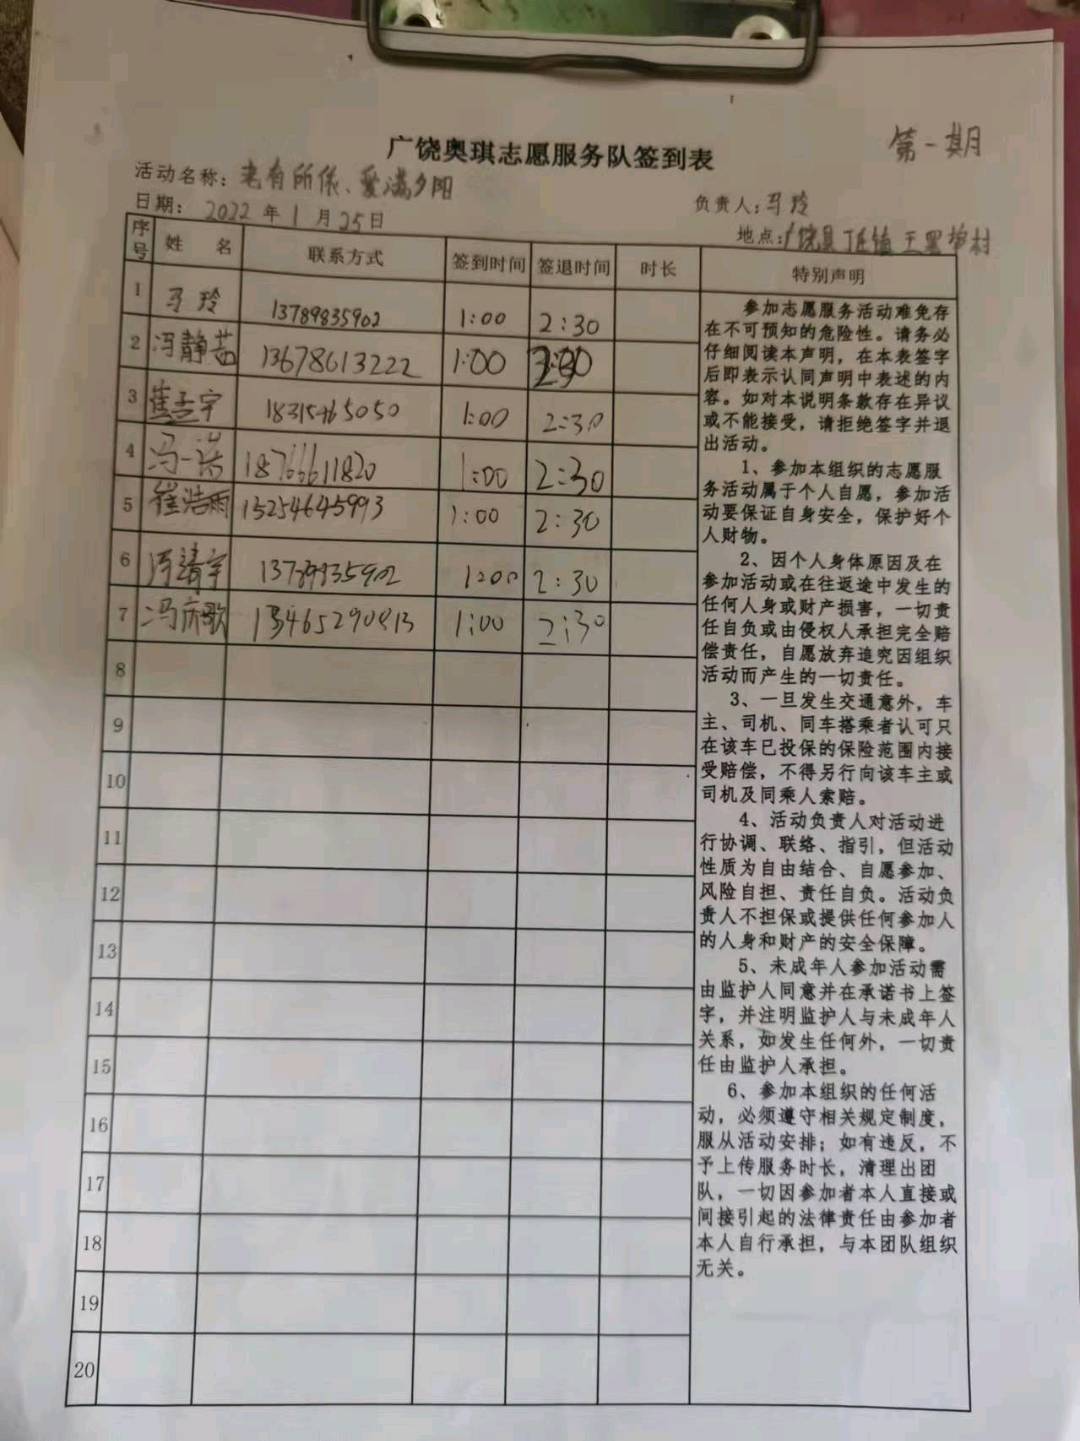 第一期
广饶奥琪志愿服务队签到表
活动名称：老有所依、爱满夕阳
日期： 2022年1月25日
负责人：马玲
地点：广饶县丁庄镇王署埠村
序号 姓 名 联系方式 签到时间 签退时间 时长 特别声明
1 马玲 13789835902 1:00 2:30
2 冯静茹 13678613222 1:00 2:30
3 崔孟宇 1:00 2:30
4 冯一诺 18766611820 1:00 2:30
5 崔浩雨 15254645993 1:00 2:30
6 冯靖宇 13789835902 1:00 2:30
7 冯庆歌 1:00 2:30
8
9
10
11
12
13
14
15
16
17
18
19
20
参加志愿服务活动难免存
在不可预知的危险性。请务必
仔细阅读本声明，在本表签字
后即表示认同声明中表述的内
容。如对本说明条款存在异议
或不能接受，请拒绝签字并退
出活动。
1、参加本组织的志愿服
务活动属于个人自愿，参加活
动要保证自身安全，保护好个
人财物。
2、因个人身体原因及在
参加活动或在往返途中发生的
任何人身或财产损害，一切责
任自负或由侵权人承担完全赔
偿责任，自愿放弃追究因组织
活动而产生的一切责任。
3、一旦发生交通意外，车
主、司机、同车搭乘者认可只
在该车已投保的保险范围内接
受赔偿，不得另行向该车主或
司机及同乘人索赔。
4、活动负责人对活动进
行协调、联络、指引，但活动
性质为自由结合、自愿参加、
风险自担、责任自负。活动负
责人不担保或提供任何参加人
的人身和财产的安全保障。
5、未成年人参加活动需
由监护人同意并在承诺书上签
字，并注明监护人与未成年人
关系，如发生任何外，一切责
任由监护人承担。
6、参加本组织的任何活
动，必须遵守相关规定制度，
服从活动安排；如有违反，不
予上传服务时长，清理出团
队，一切因参加者本人直接或
间接引起的法律责任由参加者
本人自行承担，与本团队组织
无关。